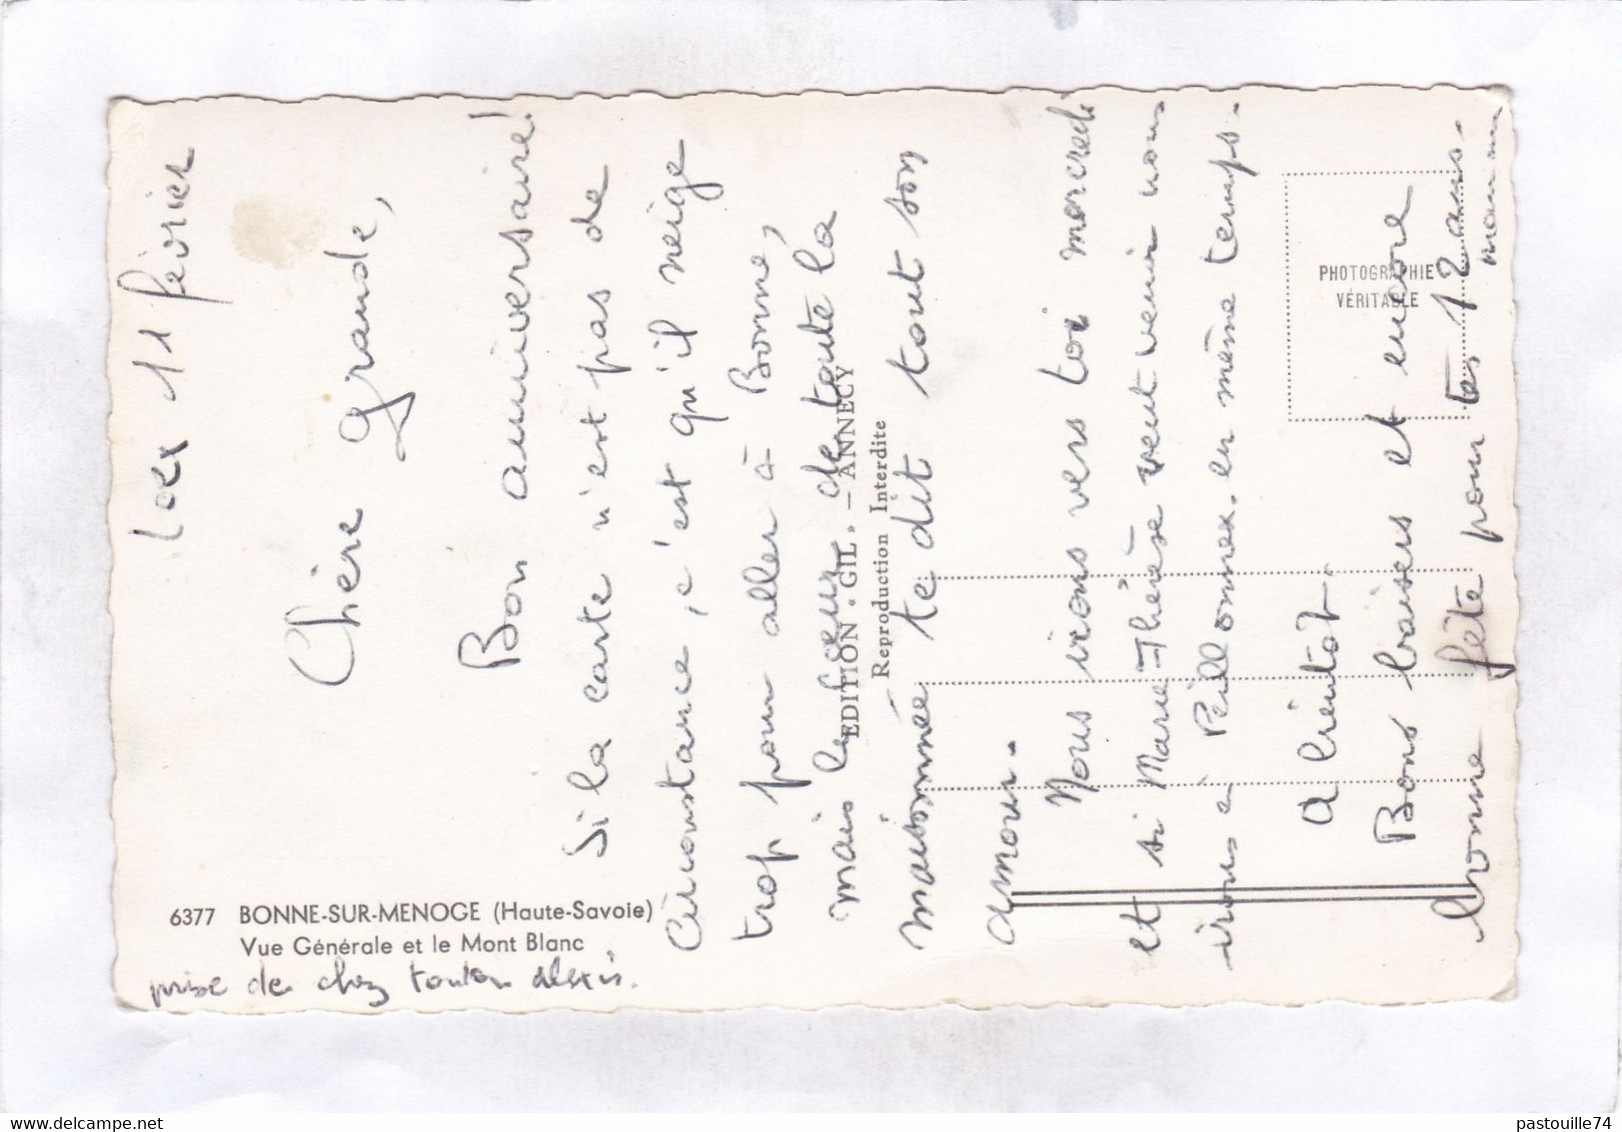 Loex 11 février
Chère grande,
Bon anniversaire!
Si la carte n'est pas de
circonstance, c'est qu'il neige
trop pour aller à Bonne,
mais le cœur de toute la
maisonnée te dit tout son
amour.
Nous irons vers toi mercredi
et si Marie-Thérèse veut venir nous
irons à Peillonnex en même temps.
A bientôt.
Bons baisers et encore
bonne fête pour tes 12 ans.
maman
6377 BONNE-SUR-MENOGE (Haute-Savoie)
Vue Générale et le Mont Blanc
prise de chez tonton alexis.
EDITION « GIL » - ANNECY
Reproduction Interdite
PHOTOGRAPHIE
VÉRITABLE
www.delcampe.net
pastouille74